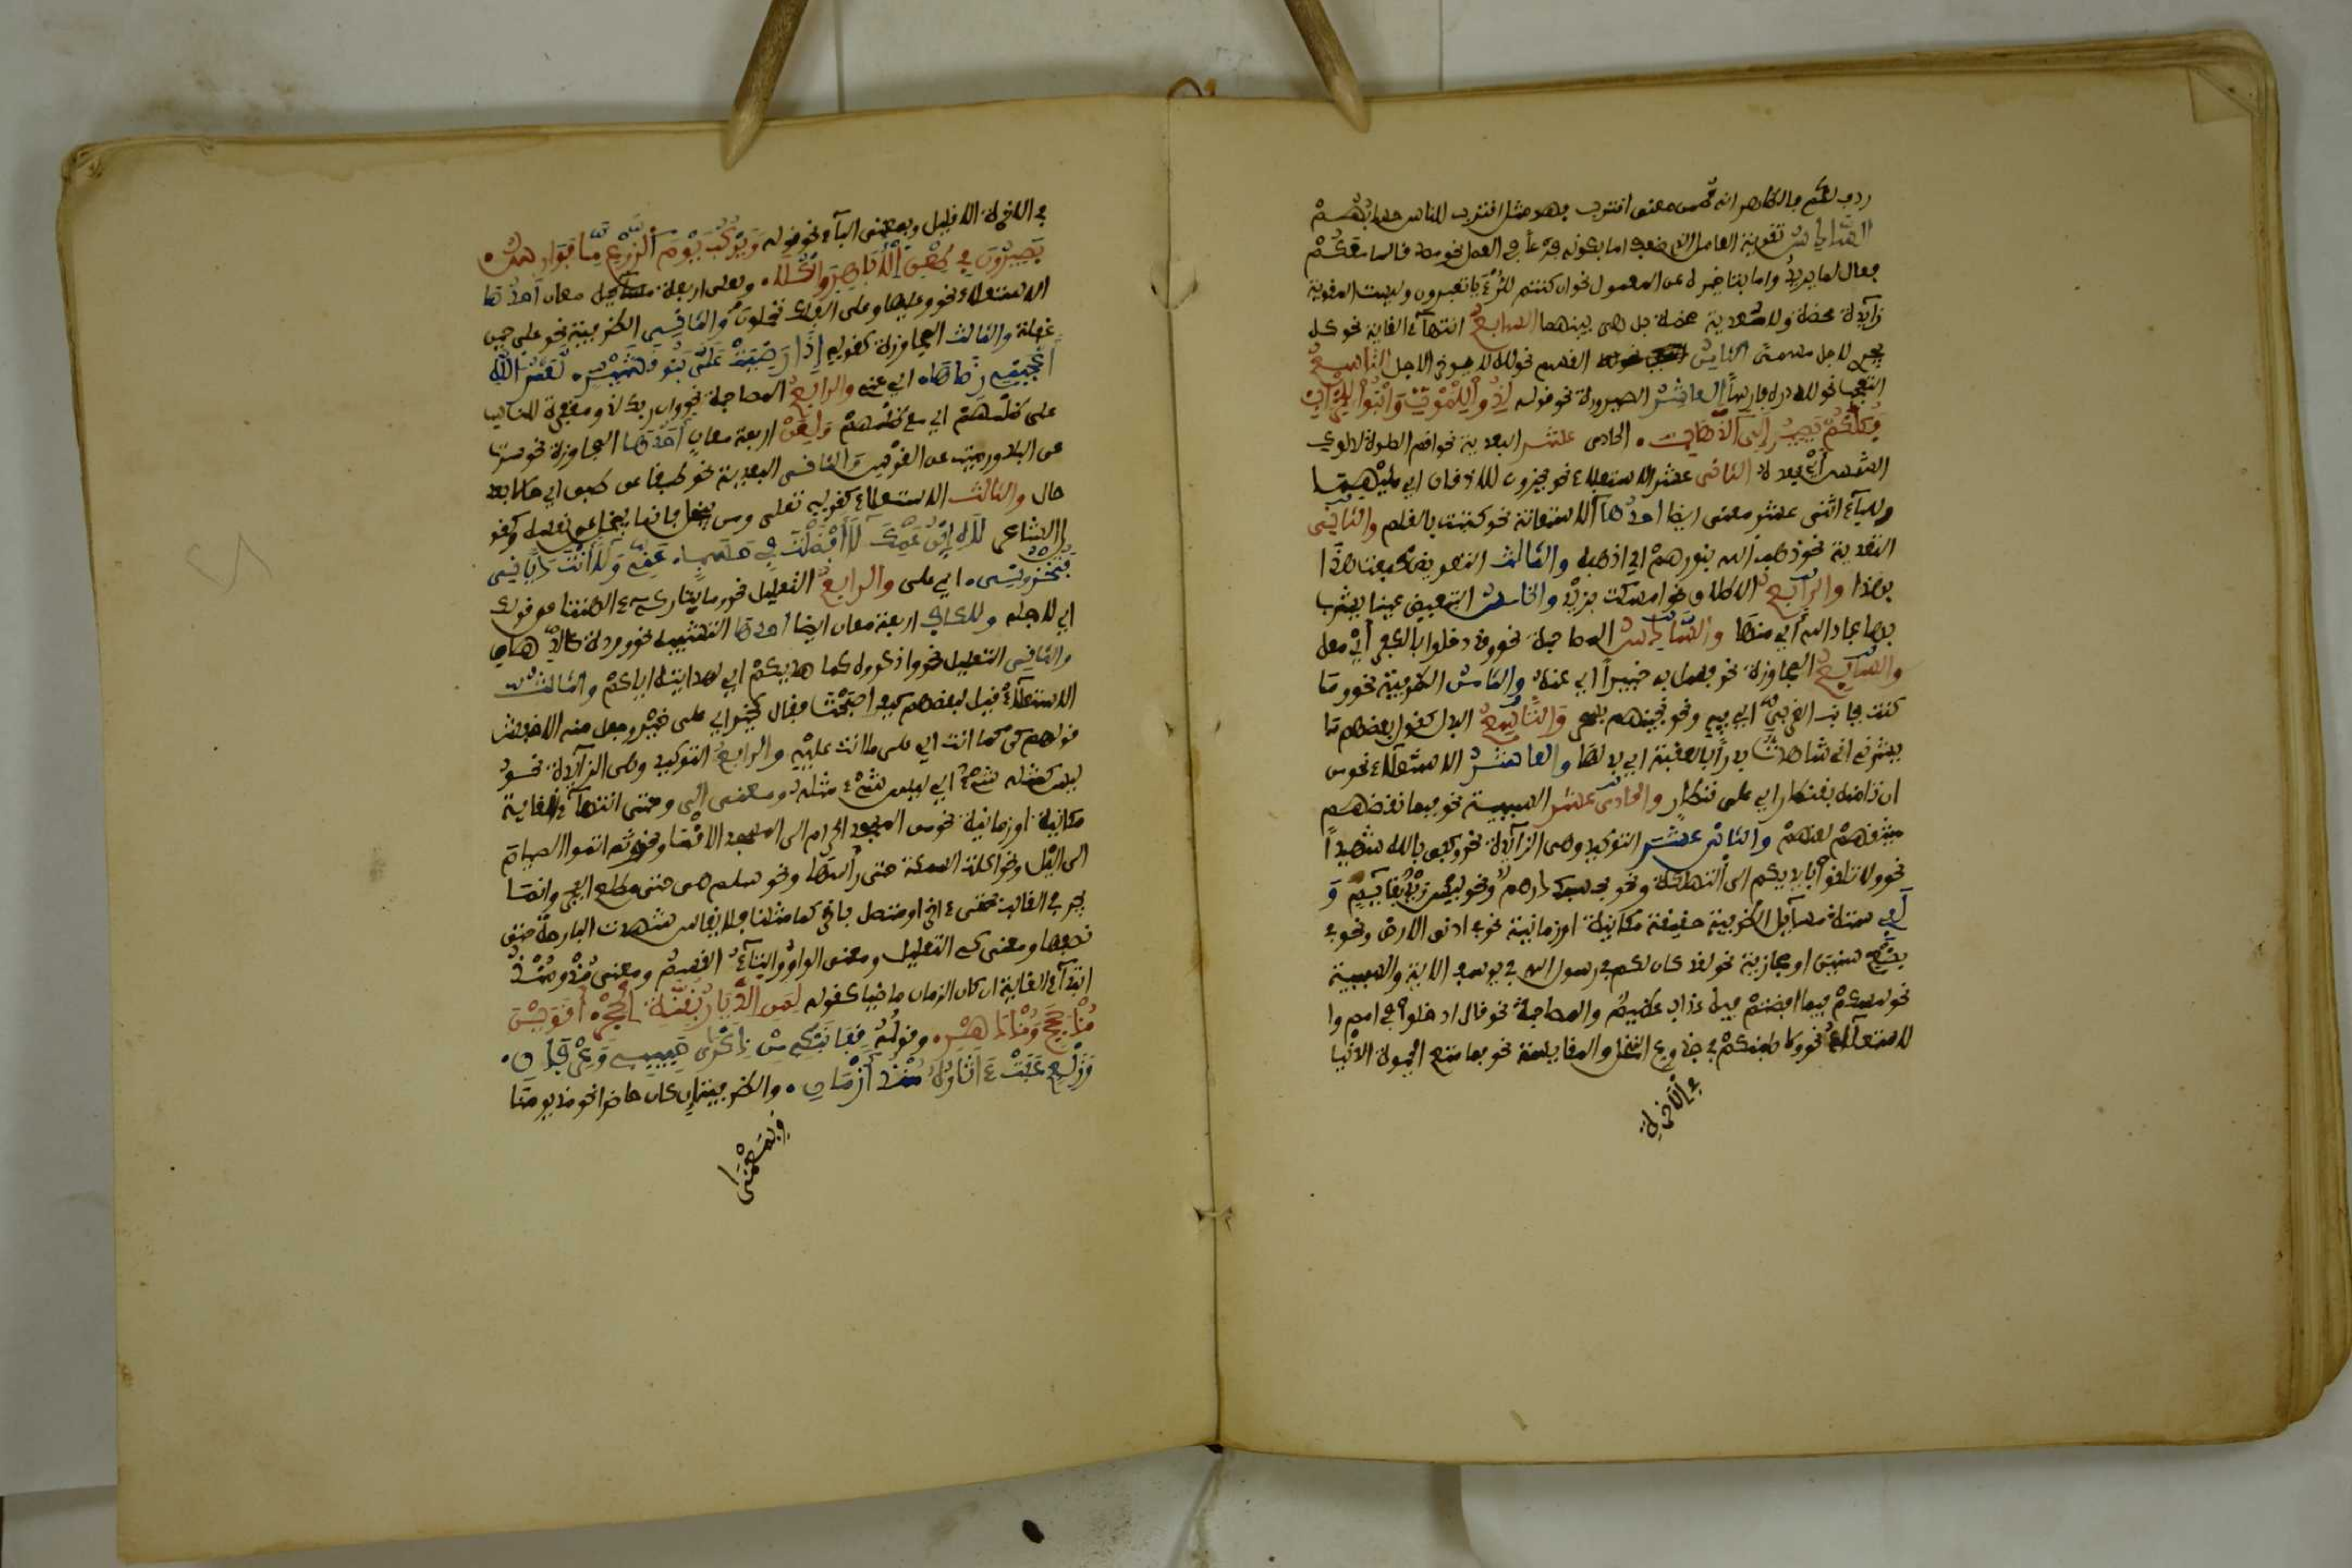 ردف لكم فالظاهر انه ضمن معنى اقترب فهو مثل اقترب للناس حسابهم
السادس تقوية العامل الذي ضعف اما بكونه فرعا في العمل نحو مصدقا لما معكم
فعال لما يريد واما بتاخيره عن المعمول نحو ان كنتم للرءيا تعبرون وليست المقوية
زايدة محضة ولا معدية محضة بل هى بينهما السابع انتهاء الغاية نحو كل
يجري لاجل مسمى الثامن القسم نحو لله لا يوخر الاجل التاسع
التعجب نحو لله دره فارسا العاشر الصيرورة نحو قوله لدوا للموت وابنوا للخراب
فكلكم يصير الى الذهاب الحادى عشر البعدية نحو اقم الصلوة لدلوك
الشمس أي بعده الثانى عشر الاستعلاء نحو يخرون للاذقان اي عليها
وللباء اثنى عشر معنى ايضا احدها الاستعانة نحو كتبت بالقلم والثانى
التعدية نحو ذهب الله بنورهم اي اذهبه والثالث التعويض كبعت هذا
بهذا والرابع الالصاق نحو امسكت بزيد والخامس التبعيض عينا يشرب
بها عباد الله أي منها والسادس المصاحبة نحو وقد دخلوا بالكفر أي معه
والسابع المجاوزة نحو فسل به خبيرا اي عنه والثامن الظرفية نحو وما
كنت بجانب الغربي اي فيه ونحو نجيناهم بسحر والتاسع البدل كقول بعضهم ما
يسرني اني شاهدت بدرا بالعقبة اي بدلها والعاشر الاستعلاء نحو من
ان تامنه بقنطار اي على قنطار والحادى عشر السببية نحو فبما نقضهم
ميثاقهم لعنهم والثانى عشر التوكيد وهى الزائدة نحو وكفى بالله شهيدا
نحو ولا تلقوا بأيديكم الى التهلكة ونحو بحسبك درهم ونحو ليس زيد بقايم و
لفي ستة مسآيل الظرفية حقيقة مكانية او زمانية نحو في ادنى الارض ونحو في
بضع سنين او مجازية نحو لقد كان لكم في رسول الله في يوسف الاية والسببية
نحو لمسكم فيما افضتم فيه عذاب عظيم والمصاحبة نحو قال ادخلوا في امم وا
لاستعلاء نحو ولاصلبنكم في جذوع النخل والمقايسة نحو فما متع الحيوة الدنيا
في الاخرة
في الاخرة الا قليل وبمعنى الباء نحو قوله ويركب يوم الروع منا فوارس
بصيرون في طعن الاباهر والكلا ولعلى اربعة معان أحدها
الاستعلاء نحو وعليها وعلى الفلك تحملون والثانى الظرفية نحو على حين
غفلة والثالث المجاوزة كقوله إذا رضيت على بنو قشير لعمر الله
أعجبني رضاها اي عنى والرابع المصاحبة نحو وان ربك لذو مغفرة للناس
على ظلمهم اي مع ظلمهم ولعن اربعة معان أحدها المجاوزة نحو سرت
عن البلد ورميت عن القوس والثانى البعدية نحو طبقا عن طبق اي حالا بعد
حال والثالث الاستعلاء كقوله تعلى ومن يبخل فانما يبخل عن نفسه وكقو
ل الشاعر لاه ابن عمك لا أفضلت في حسب عني ولا أنت دياني
فتخزوني اي على والرابع التعليل نحو وما نحن بتاركي ءالهتنا عن قولك
اي لاجله وللكاف اربعة معان ايضا احدها التشبيه نحو وردة كالدهان
والثانى التعليل نحو واذكروه كما هديكم اي لهدايته اياكم والثالث
الاستعلاء قيل لبعضهم كيف اصبحت فقال كخير اي على خير وجعل منه الاخفش
قولهم كن كما انت اي على ما انت عليه والرابع التوكيد وهى الزآيدة نحو
ليس كمثله شيء اي ليس شيء مثله ومعنى إلى وحتى انتهاء الغاية
مكانية او زمانية نحو من المسجد الحرام الى المسجد الاقصا ونحو ثم اتموا الصيام
الى اليل ونحو اكلت السمكة حتى رأسها ونحو سلم هى حتى مطلع الفجر وانما
يجر في الغالب بحتى ءاخر او متصل بآخر كما مثلنا فلا يقال سهرت البارحة حتى
نصفها ومعنى كى التعليل ومعنى الواو والتآء القسم ومعنى مذ ومنذ
ابتدآء الغاية ان كان الزمان ماضيا كقوله لمن الديار بقنة الحجر أقوين
مذ حجج ومذ دهر وقوله قفا نبك من ذكرى حبيب وعرفان
وربع عفت ءاثاره منذ أزمان والظرفية ان كان حاضرا نحو مذ يومنا
وبمعنى